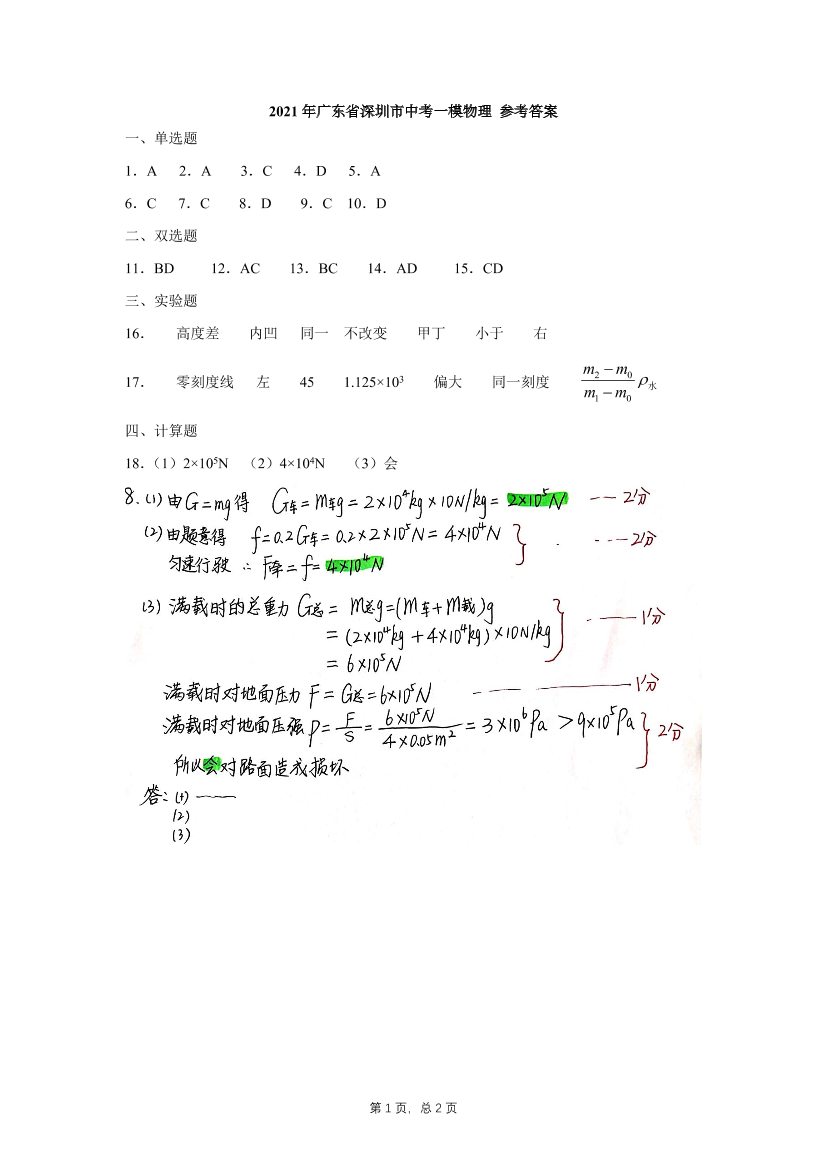 2021 年广东省深圳市中考一模物理 参考答案
一、单选题
1．A 2．A 3．C 4．D 5．A
6．C 7．C 8．D 9．C 10．D
二、双选题
11．BD 12．AC 13．BC 14．AD 15．CD
三、实验题
16． 高度差 内凹 同一 不改变 甲丁 小于 右
17． 零刻度线 左 45 1.125×10³ 偏大 同一刻度 (m₂－m₀)/(m₁－m₀) ρ水
四、计算题
18．（1）2×10⁵N （2）4×10⁴N （3）会
8. (1) 由G=mg得 G车=m车g=2×10⁴kg×10N/kg=2×10⁵N ---2分
(2) 由题意得 f=0.2G车=0.2×2×10⁵N=4×10⁴N ----2分
匀速行驶 ∴ F牵=f=4×10⁴N
(3) 满载时的总重力 G总=m总g=(m车+m载)g
=(2×10⁴kg+4×10⁴kg)×10N/kg ---1分
=6×10⁵N
满载时对地面压力 F=G总=6×10⁵N ---1分
满载时对地面压强 p=F/S=6×10⁵N/4×0.05m²=3×10⁶Pa >9×10⁵Pa 2分
所以会对路面造成损坏
答：(1) ——
(2)
(3)
第 1 页，总 2 页